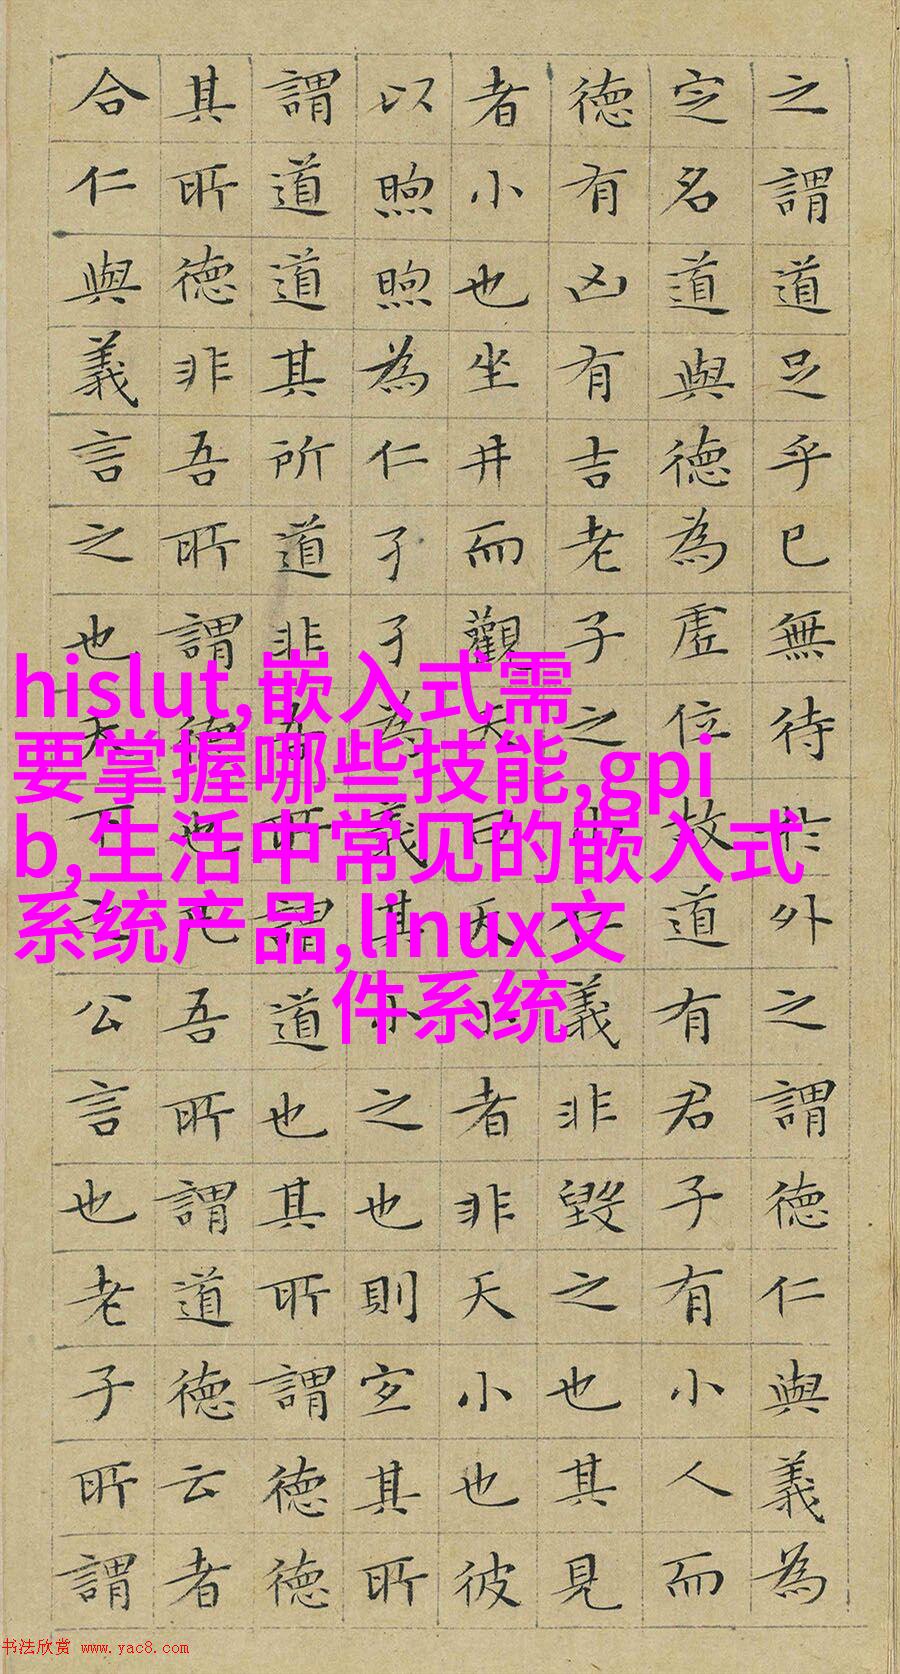 之謂道足乎已無待於外之謂德仁與義為
定名道與德為虛位故道有君子有小人而
德有凶有吉老子之小仁義非毀之也其見
者小也坐井而觀天曰天小者非天小也彼
以煦煦為仁孑孑為義其小之也則宜其所
謂道道其所道非吾所謂道也其所謂德德
其所德非吾所謂德也凡吾所謂道德云者
合仁與義言之也天下之公言也老子所謂
hislut,嵌入式需
要掌握哪些技能,gpi
b,生活中常见的嵌入式
系统产品,linux文
件系统
书法欣赏 www.yac8.com